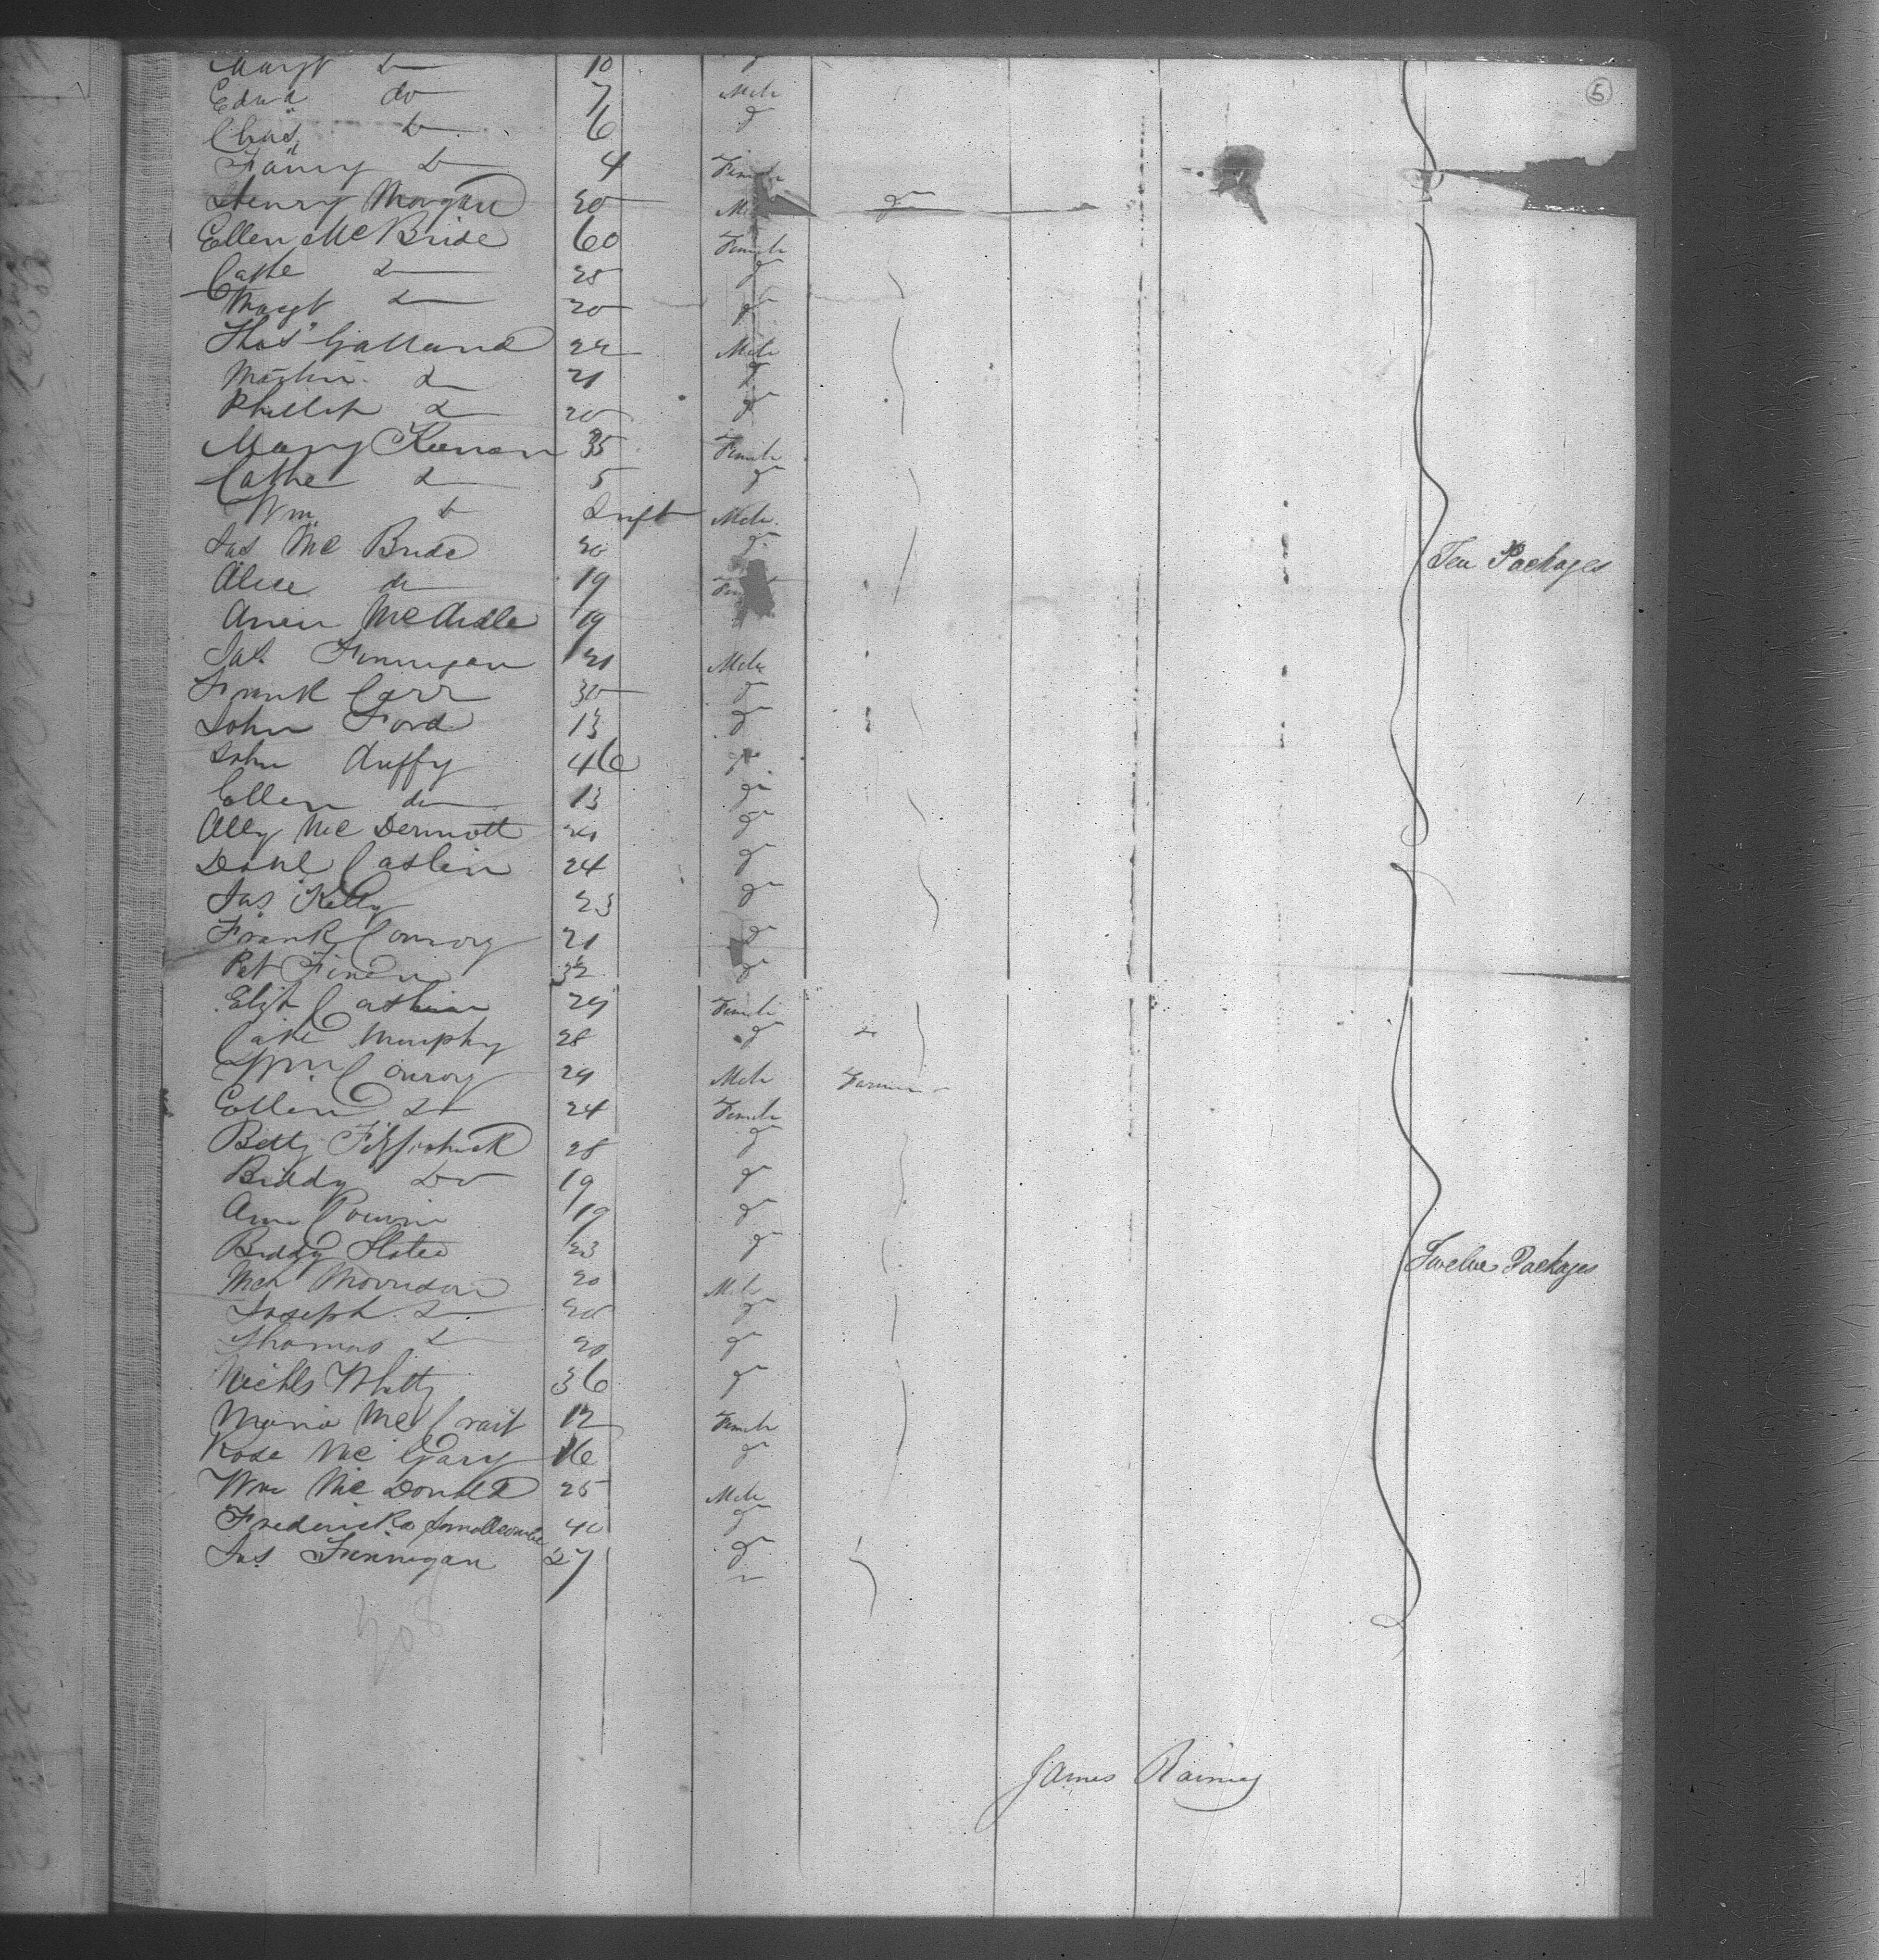 5
Margt do 10 do
Edwd do 7 Male
Chas do 6 do
Fanny do 4 Female
Henry Morgan 20 Male do
Ellen McBride 60 Female
Cathe do 25 do
Margt do 20 do
Thos Galland 22 Male
Martin do 21 do
Phillip do 20 do
Mary Keenan 35 Female
Cathe do 5 do
Wm do Inft Male
Jas McBride 20 do
Alice do 19
Ann McArdle 19
Jas Finnigan 21 Male
Frank Carr 30 do
John Ford 13 do
John Duffy 46 do
Ellen do 13 do
Ally McDermott do
Danl Caslin 24 do
Jas Kelly 23 do
Frank Conroy 21 do
Pat 32 do
Eliz Caslin 24 Female
Cathe Murphy 28 do
Wm Conroy 24 Male Farmer
Ellen do 24 Female
Betty Fitzpatrick 28 do
Biddy do 19 do
Ann 19 do
Biddy 23 do
Mch Morrison 20 Male
Joseph do do
Thomas do 20 do
Nichls Whitty 36 do
Maria 12 Female
Rose McGary 16 do
Wm McDonald 25 Male
Frederick Smallcombe 40 do
Jas Finnigan 27 do
Ten Packages
Twelve Packages
208
James Rainey